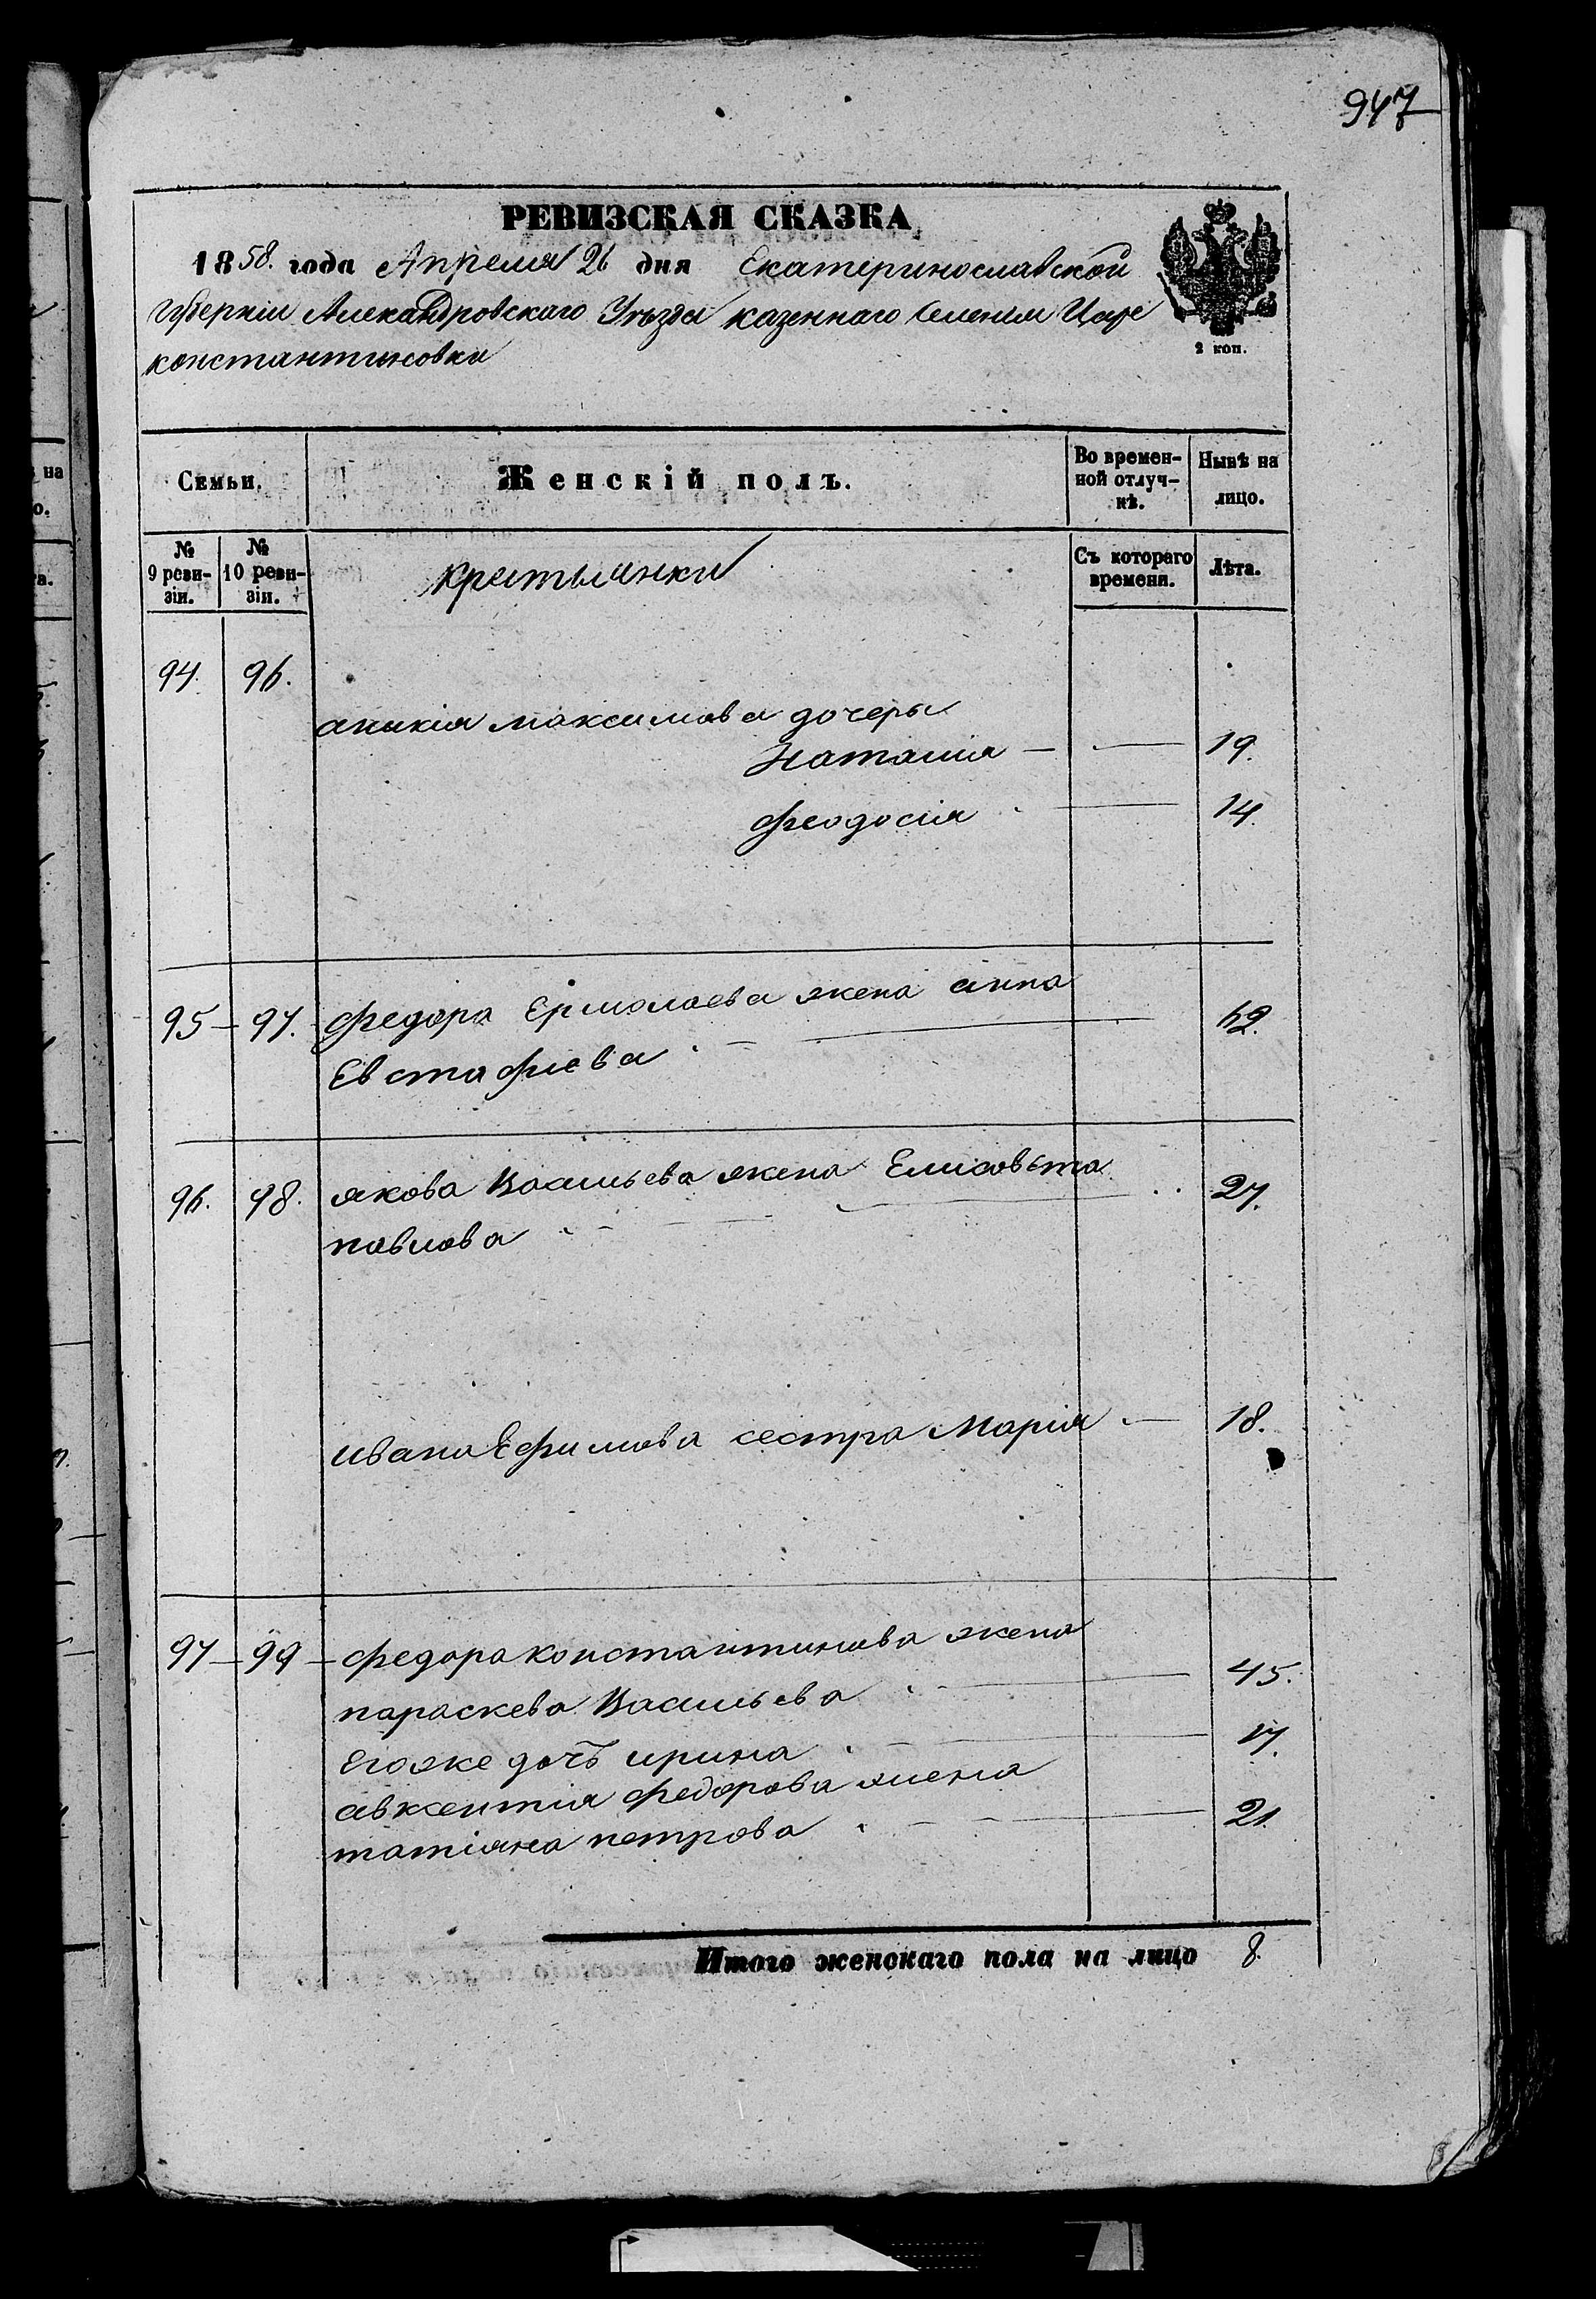 947
РЕВИЗСКАЯ СКАЗКА
1858. года Апреля 26 дня Екатеринославской
губерніи Александровскаго Уѣзда казеннаго Селенія Царе
константиновки
2 коп.
Семьи. Женскій полъ. Во времен- Нынѣ на
ной отлуч- лицо.
кѣ.
№ № крестьянки Съ котораго Лѣта.
9 реви- 10 реви- времени.
зіи. зіи.
94. 96.
аникія максимова дочеры
Наталія — — 19.
феодосія — 14.
95 — 97. федора Ермолаева жена анна
Евстафиева — 62.
96. 98. якова Васильева жена Елисавѣта
павлова — 27.
ивана Ефимова сестра Марія — 18.
97 — 99 — федора константинова жена
параскева Васильева — 45.
Егоже дочь ирина — 17.
авксентия федорова жена
татіяна петрова — 21.
Итого женскаго пола на лицо 8.